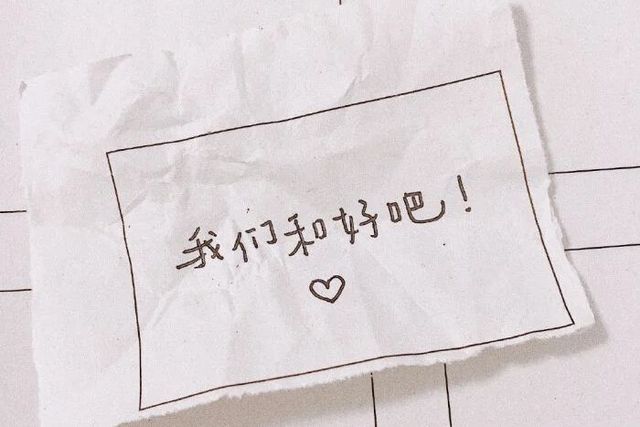 我们和好吧！
♡